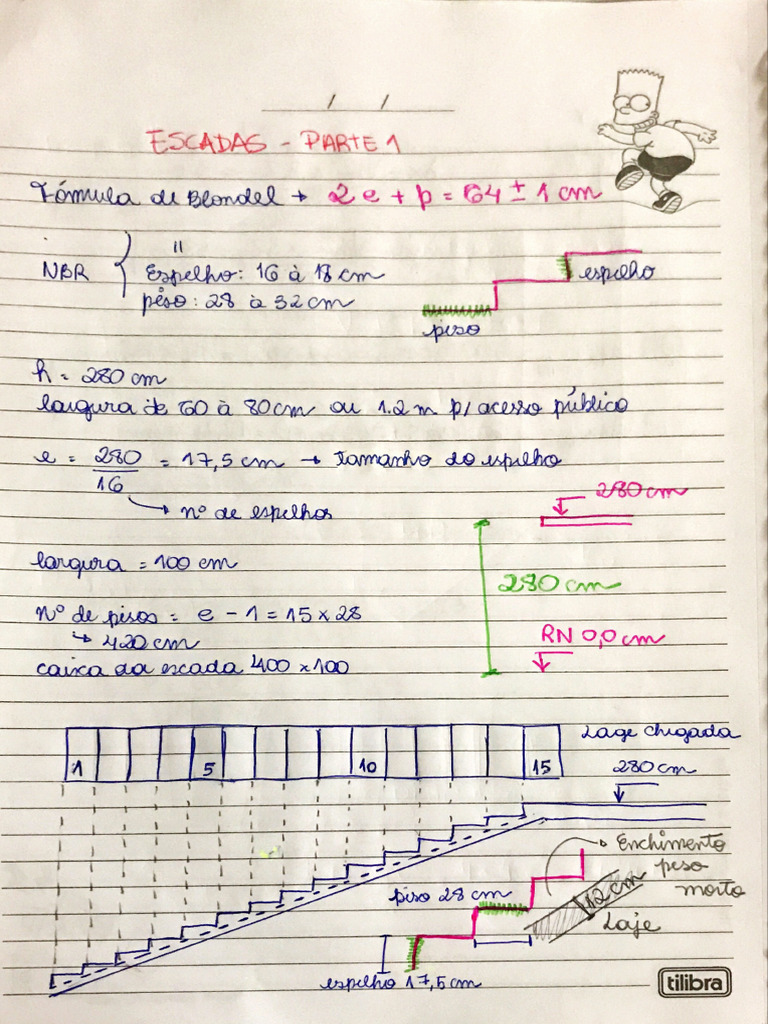 / /
ESCADAS - PARTE 1
Fórmula de Blondel → 2e + p = 64 ± 1 cm
NBR { "
Espelho: 16 à 18 cm
piso: 28 à 32 cm
espelho
piso
h = 280 cm
largura de 60 à 80cm ou 1.2 m p/ acesso público
e = 280/16 = 17,5 cm → Tamanho do espelho
→ nº de espelhos
280 cm
largura = 100 cm
280 cm
Nº de pisos = e - 1 = 15 x 28
↳ 420 cm
RN 0,0 cm
caixa da escada 400 x 100
1 5 10 15
Lage chegada
280 cm
Enchimento
peso
morto
piso 28 cm
12 cm
Laje
espelho 17,5 cm
tilibra